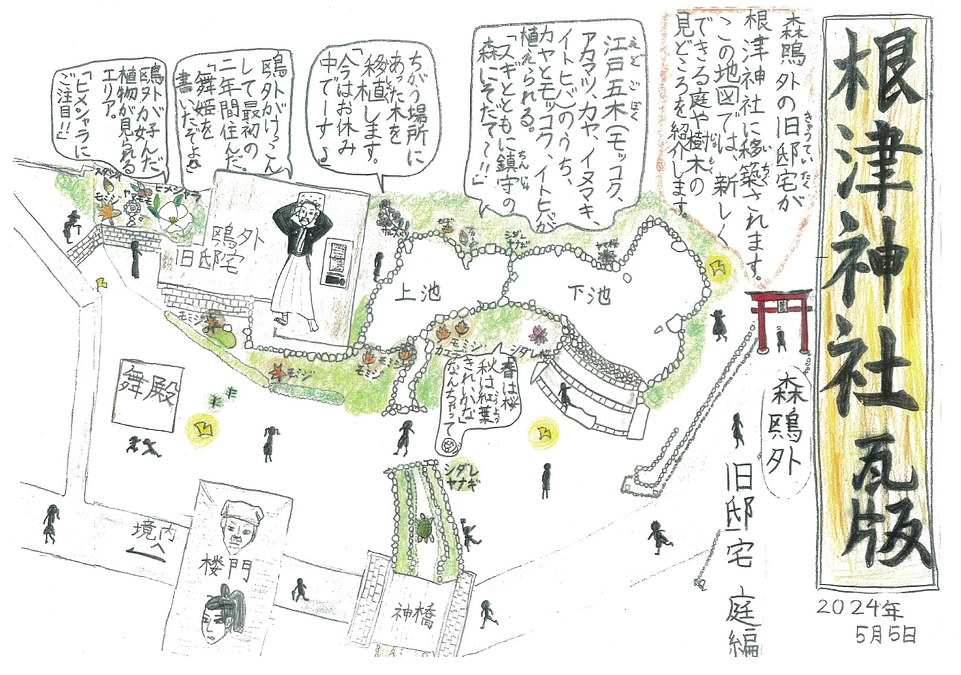 根津神社 瓦版
2024年
5月5日
森鴎外
旧邸宅 庭編
森鴎外の旧邸宅が
きゅうていたく
根津神社に移築されます。
いちく
この地図では、新しく
できる庭や樹木の
じゅもく
見どころを紹介します。
江戸五木(モッコク、
えどごぼく
アカマツ、カヤ、イヌマキ、
イトヒバ)のうち、
カヤとモッコク、イトヒバが
植えられる。
「スギとともに鎮守の
ちんじゅ
森にそだて〜!!」
ちがう場所に
あった木を
移植します。
「今はお休み
中でーす」
鴎外がけっこん
して最初の
二年間住んだ。
「舞姫を
書いたぞよ」
鴎外が好んだ
植物が見られる
エリア。
「ヒメシャラに
ご注目!!」
モミジ
ヒメシャラ
鴎外
旧邸宅
上池
下池
シダレ
ヤナギ
ヤマ桜
モミジ
モミジ
モミジ
モミジ
シダレ桜
春は桜
秋は紅葉
こうよう
きれいかな
なんちゃって
舞殿
シダレ
ヤナギ
境内
へ
楼門
神橋